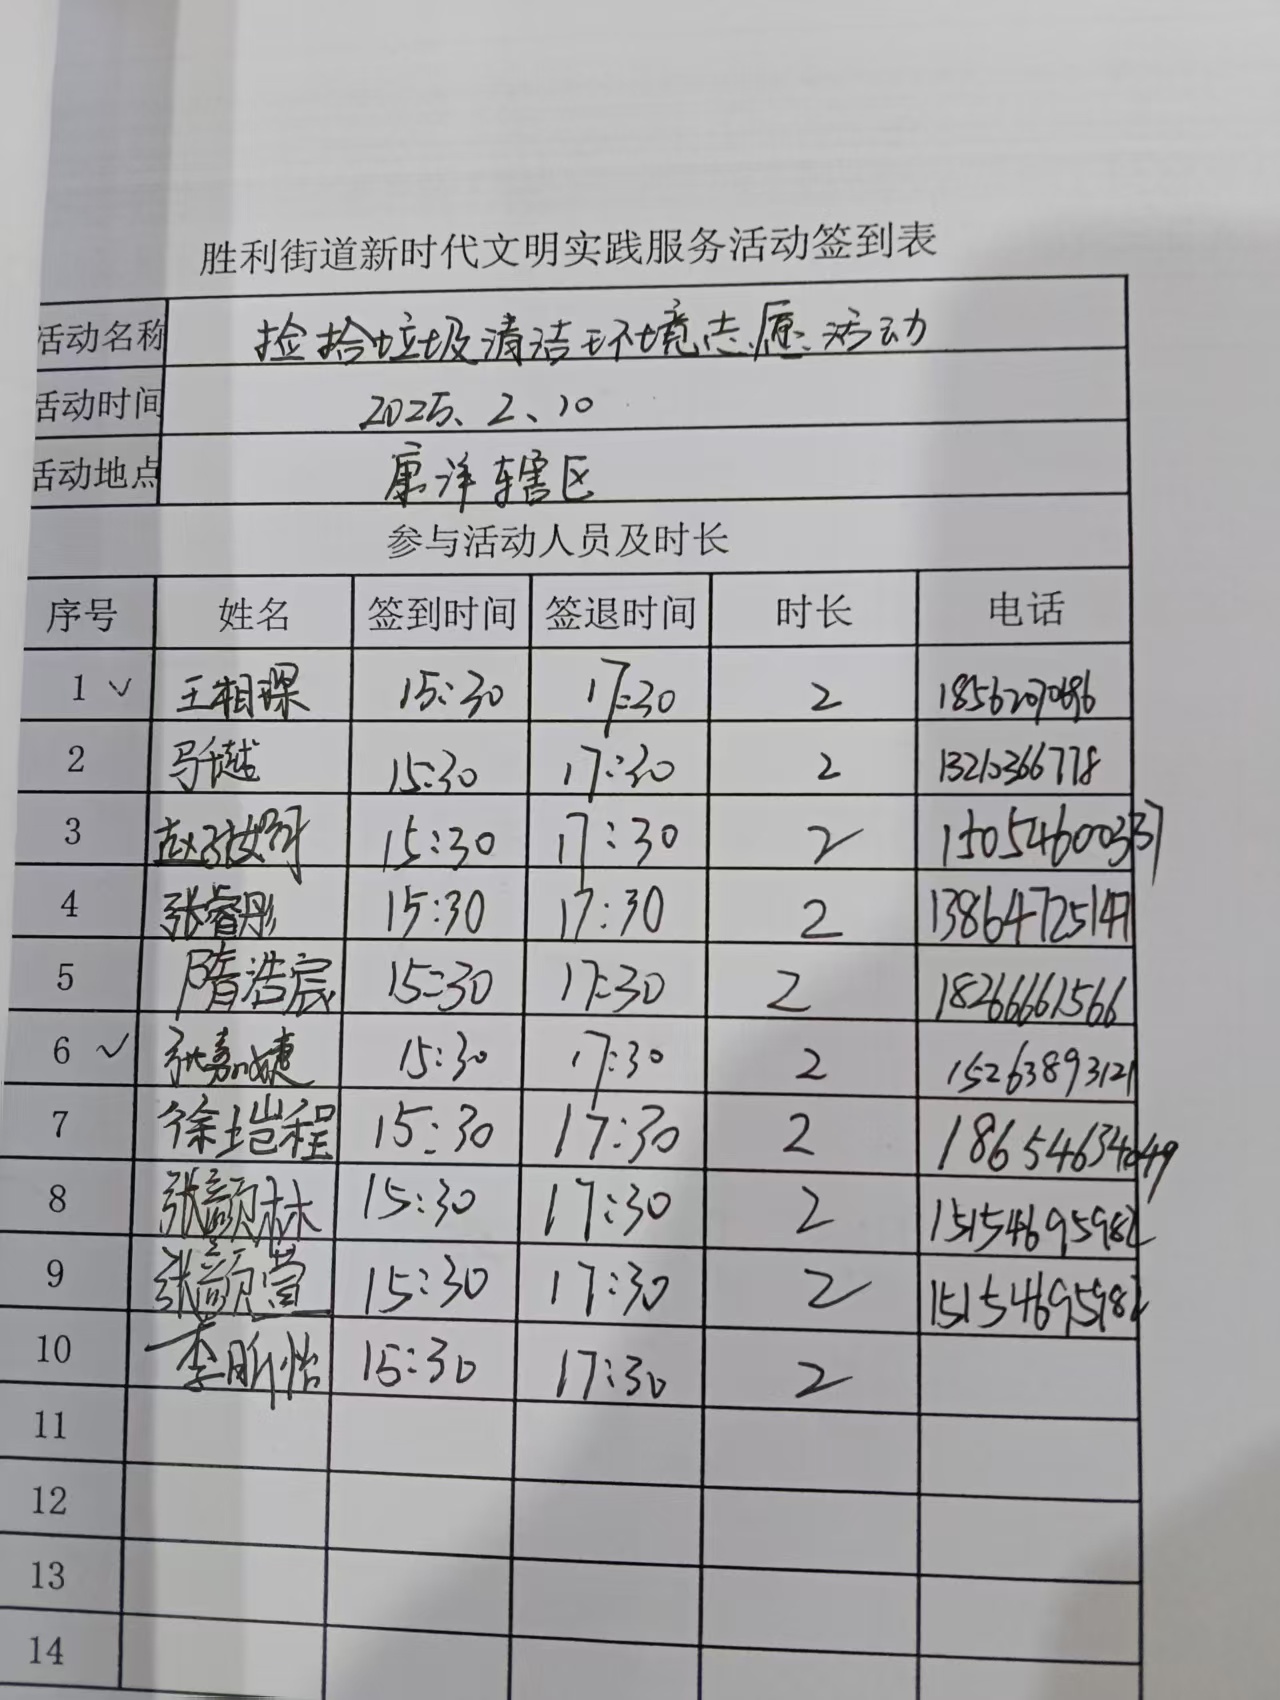 胜利街道新时代文明实践服务活动签到表
活动名称 捡拾垃圾清洁环境志愿活动
活动时间 2025、2、10
活动地点 康洋辖区
参与活动人员及时长
序号 姓名 签到时间 签退时间 时长 电话
1 ✓ 王相琛 15:30 17:30 2 18562070696
2 马千越 15:30 17:30 2 13210366778
3 15:30 17:30 2
4 张睿彤 15:30 17:30 2 13864725147
5 隋浩宸 15:30 17:30 2 18266661566
6 ✓ 张嘉婕 15:30 17:30 2 15263893121
7 徐垲程 15:30 17:30 2 18654634049
8 张颜林 15:30 17:30 2 15154695982
9 张颜萱 15:30 17:30 2 15154695982
10 李昕怡 15:30 17:30 2
11
12
13
14